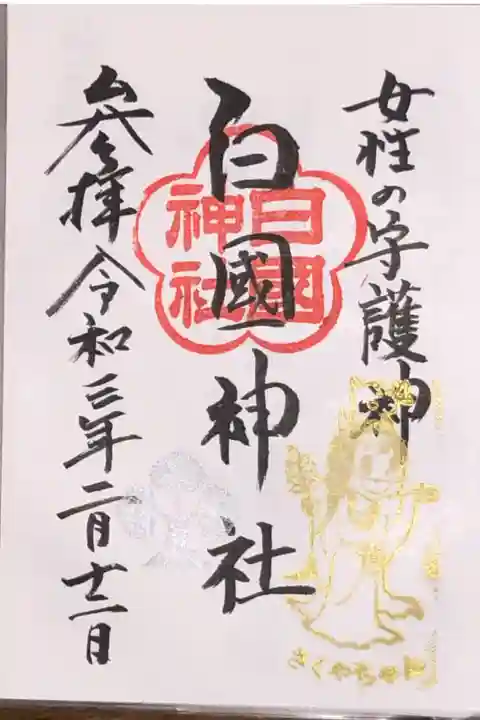 女性の守護神
白國神社
参拝 令和三年二月十一日
白國
神社
さくやちゃん